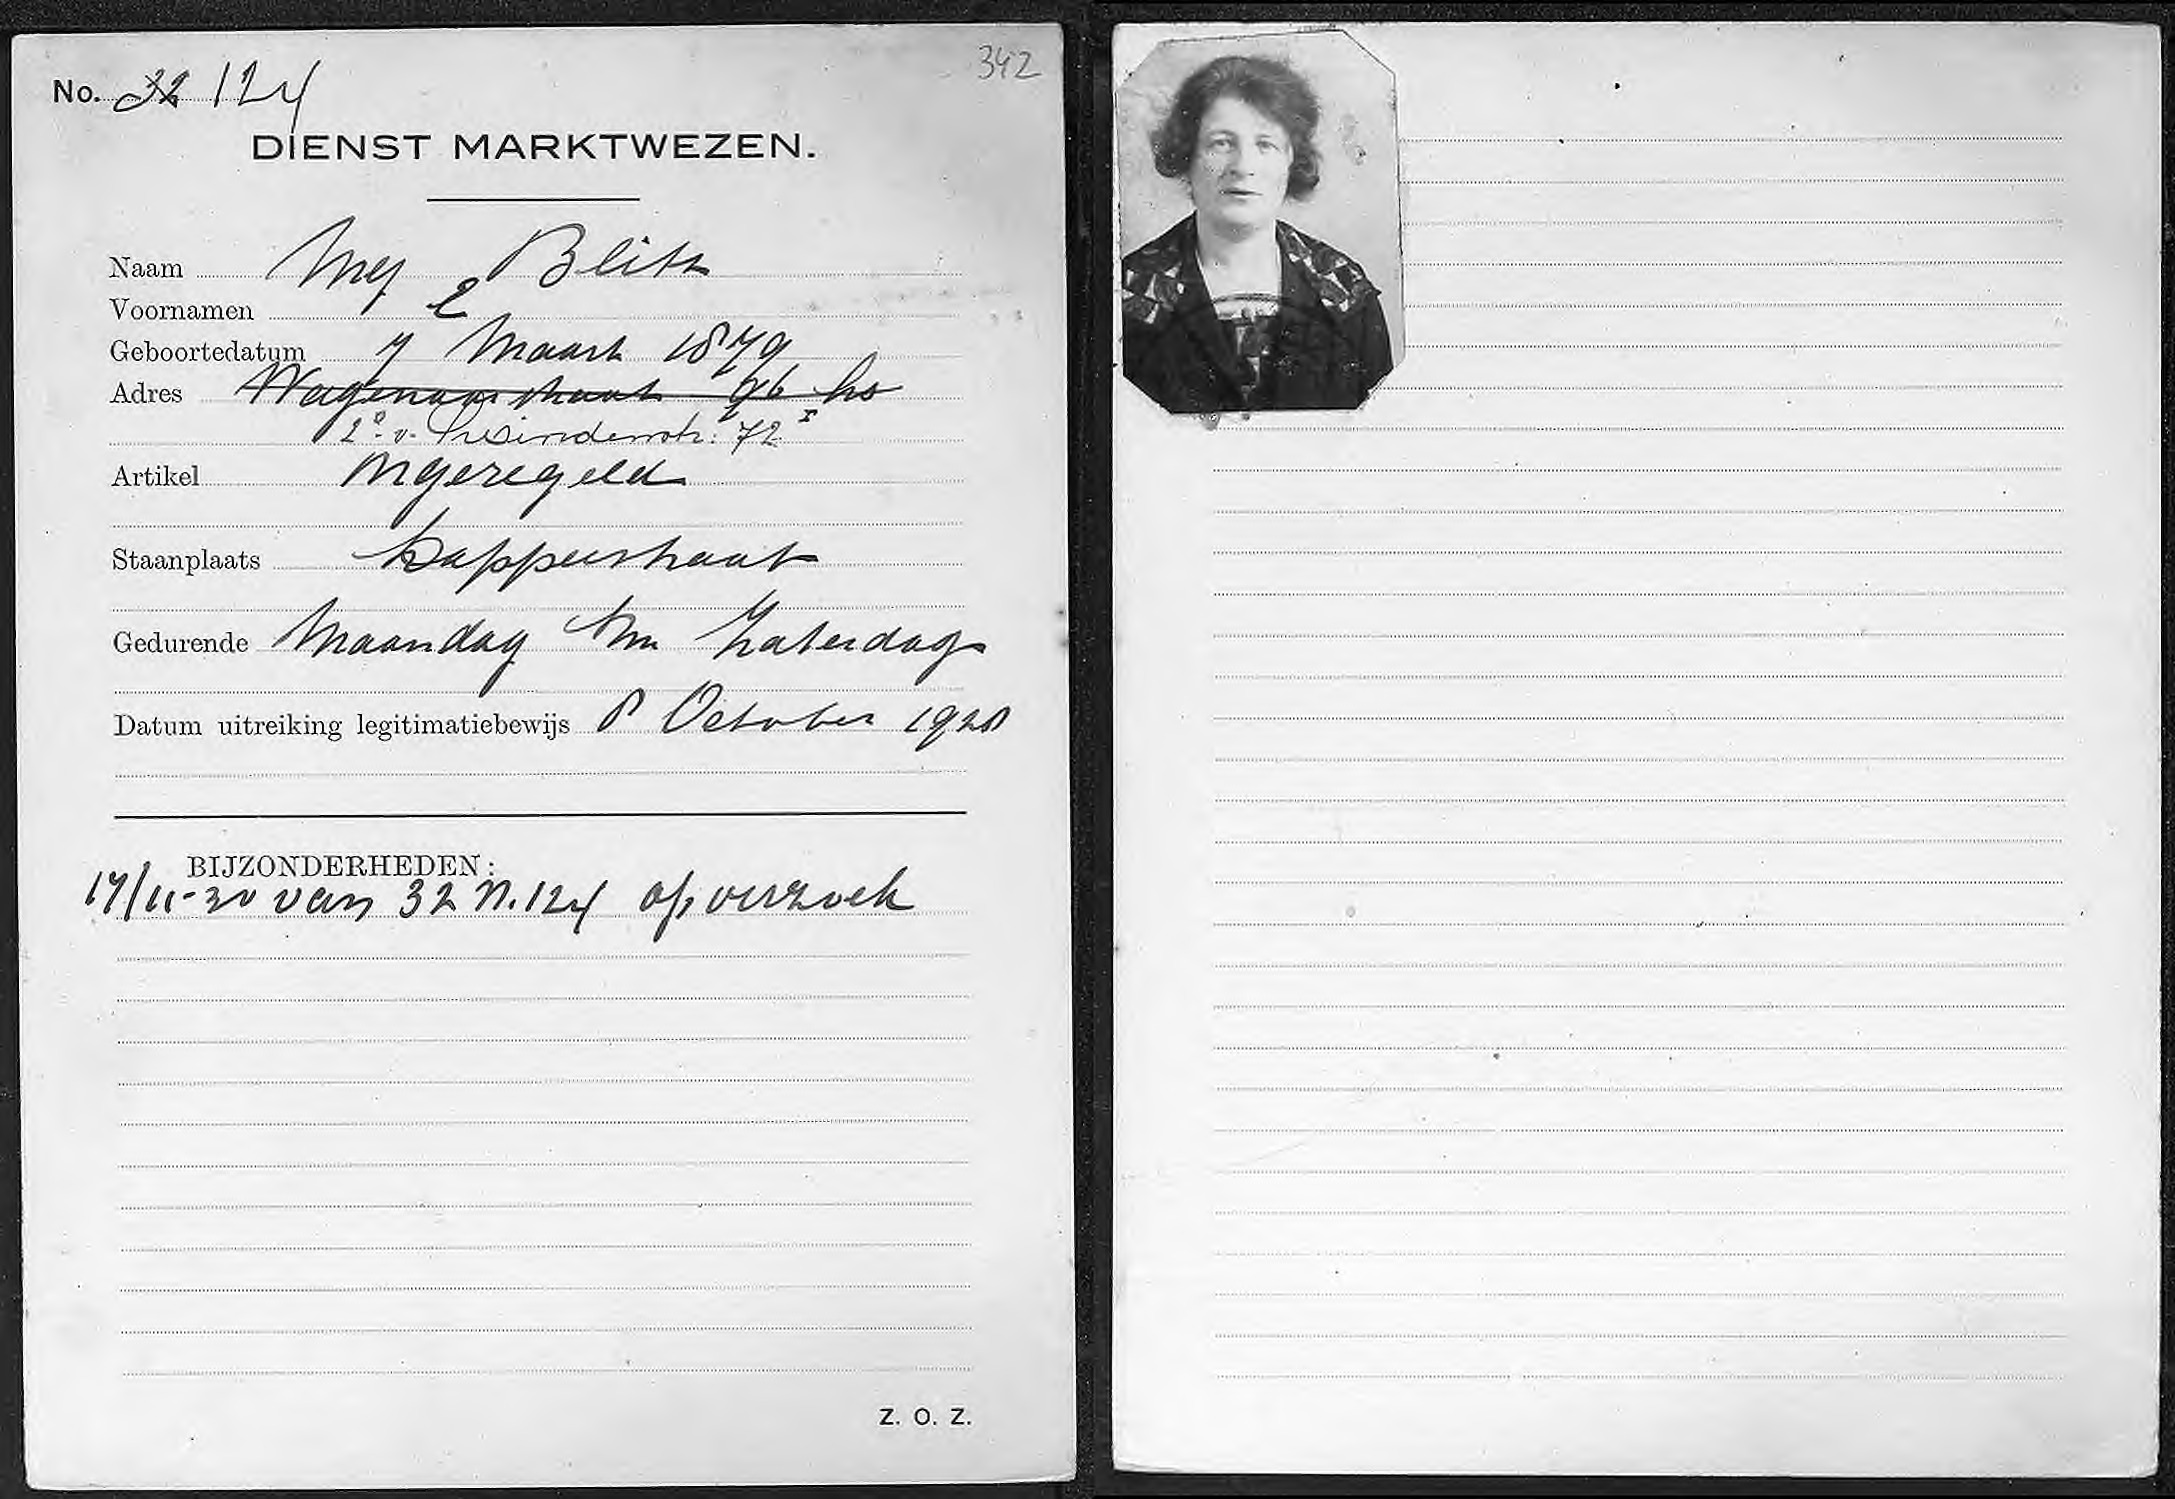 342
No. 32 124
DIENST MARKTWEZEN.
Naam Mej Blitz
Voornamen E
Geboortedatum 7 Maart 1879
Adres Wagenaarstraat 96 hs
2e v. Swindenstr: 72 I
Artikel ongeregeld
Staanplaats Dapperstraat
Gedurende Maandag t/m Zaterdag
Datum uitreiking legitimatiebewijs 8 October 1928
BIJZONDERHEDEN:
17/11-30 van 32 N. 124 op verzoek
Z. O. Z.